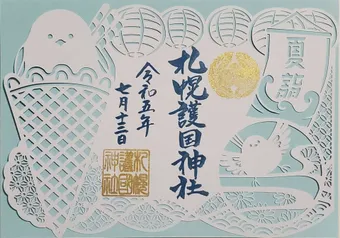 夏詣
札幌護国神社
令和五年
七月十三日
札幌
護国
神社